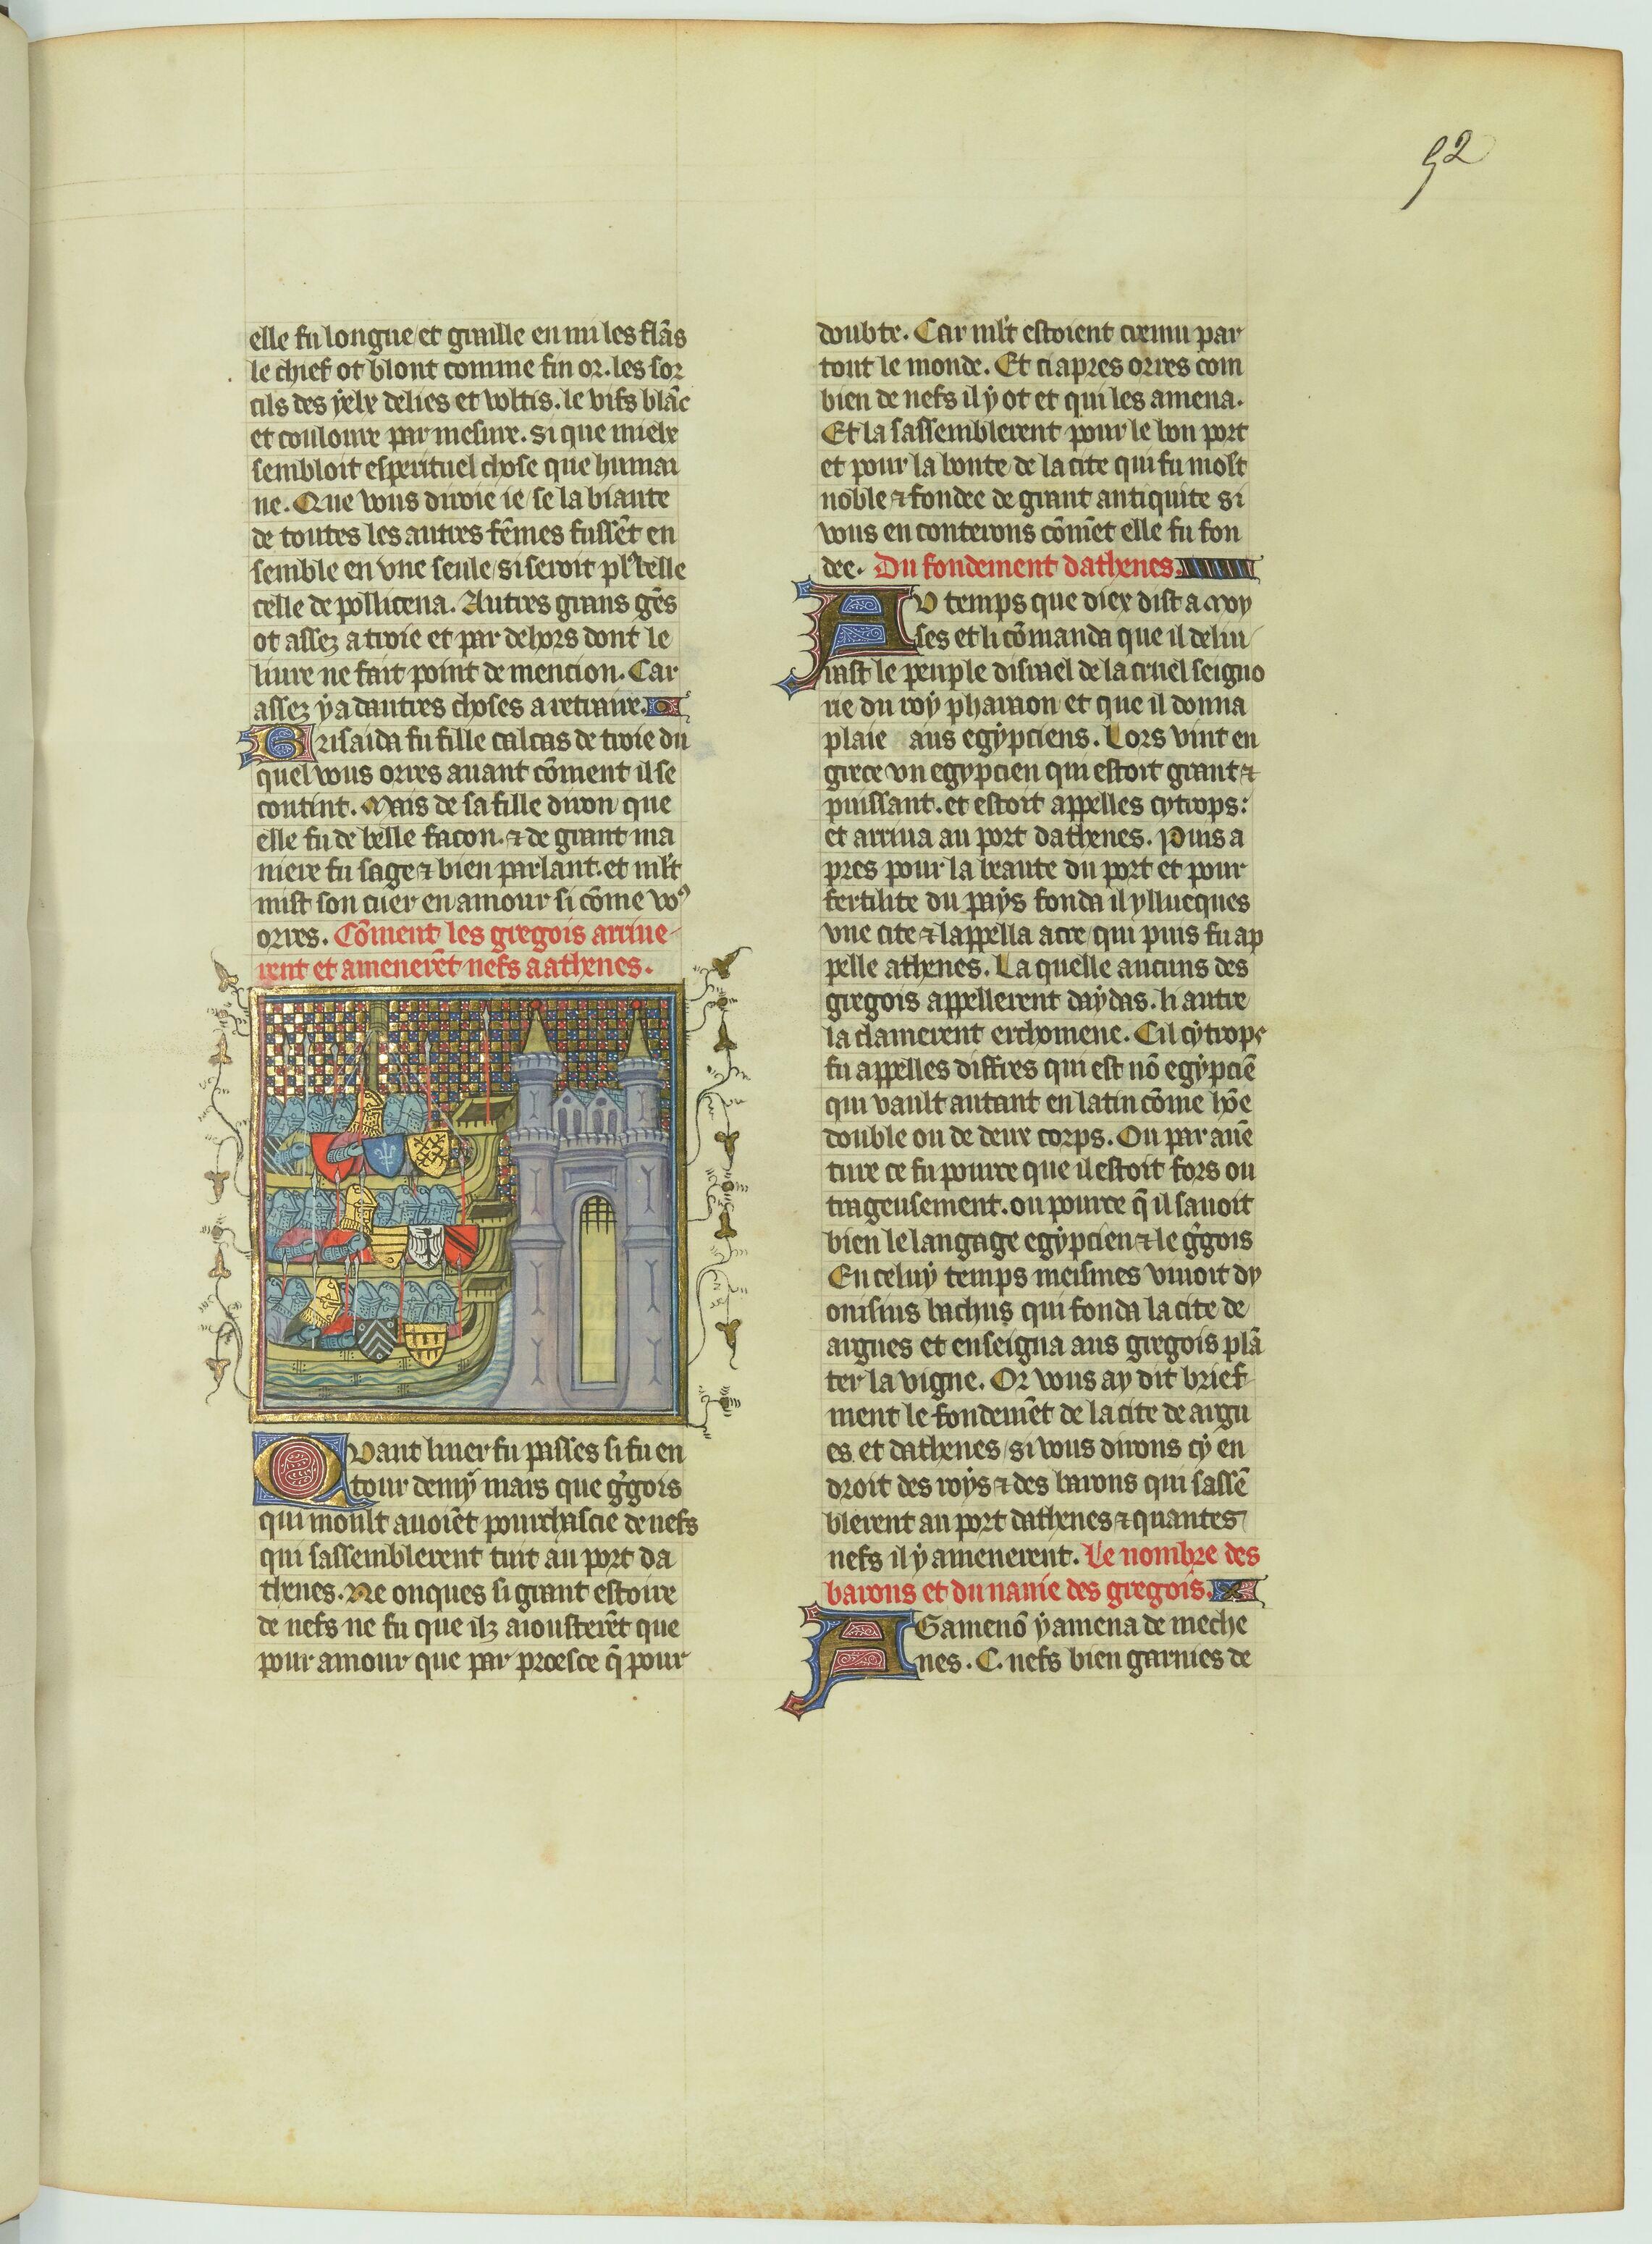 92
elle fu longue et graille en mi les flãs
le chief ot blont comme fin or. les sor
cils des ẏelx delies et voltis. le vifs blãc
et couloure par mesure. si que mielx
sembloit esperituel chose que humai
ne. Que vous diroie ie/ se la biaute
de toutes les autres fẽmes fussẽt en
semble en vne seule/ si seroit plꝰ belle
celle de pollicena. Autres grans gẽs
ot assez a troie et par dehors dont le
liure ne fait point de mention. Car
assez ẏ a dautres choses a retraire.
Brisaida fu fille calcas de troie du
quel vous orres auant cõment il se
contint. Mais de sa fille diron que
elle fu de belle facon. ⁊ de grant ma
niere fu sage ⁊ bien parlant. et mlt̃
mist son cuer en amour si cõme voꝰ
orres. Cõment les gregois arriue-
rent et amenerẽt nefs a athenes.
Quant liuer fu passes si fu en
tour demẏ mars que gr̃gois
qui moult auoiẽt pourchascie de nefs
qui sassemblerent tuit au port da
thenes. Ne onques si grant estoire
de nefs ne fu que ilz aiousterẽt que
pour amour que par proesce q̃ pour
doubte. Car mlt̃ estoient cremu par
tout le monde. Et ci apres orres com
bien de nefs il ẏ ot et qui les amena.
Et la sassemblerent pour le bon port
et pour la bonte de la cite qui fu molt
noble ⁊ fondee de grant antiquite si
vous en conterons cõmẽt elle fu fon
dee. Du fondement dathenes.
AV temps que diex dist a moy
ses et li cõmanda que il deliu
rast le peuple disrael de la cruel seigno
rie du roẏ pharaon et que il donna
plaie aus egẏpciens. Lors vint en
grece vn egypcien qui estoit grant ⁊
puissant. et estoit appelles cytrops:
et arriua au port dathenes. Puis a
pres pour la beaute du port et pour
fertilite du paẏs fonda il yllueques
vne cite ⁊ lappella acte/ qui puis fu ap
pelle athenes. La quelle aucuns des
gregois appellerent daẏdas. li autre
la clamerent erchomene. Cil cẏtrops
fu appelles diffres qui est nõ egẏpciẽ
qui vault autant en latin cõme hõe
double ou de deux corps. Ou par auẽ
ture ce fu pource que il estoit fors ou
trageusement. ou pource q̃ il sauoit
bien le langage egẏpcien ⁊ le gr̃gois
En celuẏ temps meismes viuoit dy
onisius bachus qui fonda la cite de
argues et enseigna aus gregois plã
ter la vigne. Or vous ay dit brief-
ment le fondemẽt de la cite de argu
es et dathenes/ si vous dirons cẏ en
droit des roẏs ⁊ des barons qui sassẽ
blerent au port dathenes ⁊ quantes
nefs il ẏ amenerent. Le nombre des
barons et du nauie des gregois.
AGamenõ ẏ amena de meche
nes. C. nefs bien garnies de